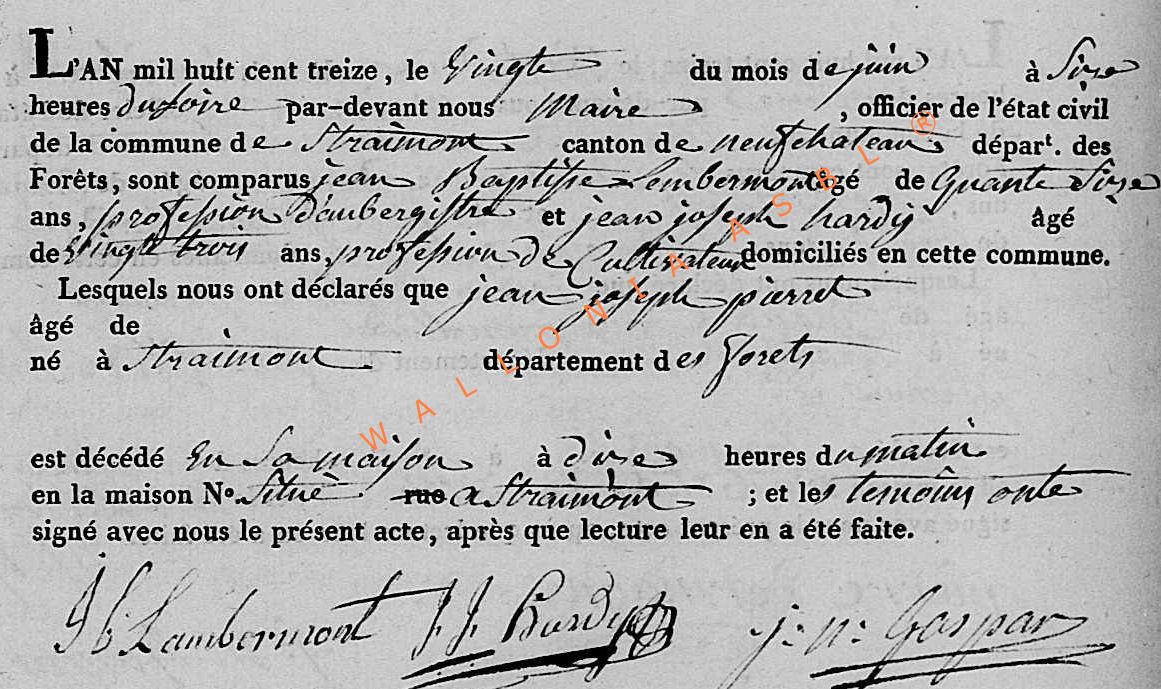 L'AN mil huit cent treize, le Vingte du mois de juin à Sixe
heures du soire par-devant nous Maire , officier de l'état civil
de la commune de Straimont canton de neufchateau, départ. des
Forêts, sont comparus jean Baptiste Lembermont âgé de Quante Sixe
ans, profession d'aubergistre et jean joseph hardÿ âgé
de Vingte trois ans, profession de Cultivateur domiciliés en cette commune.
Lesquels nous ont déclarés que jean joseph pierret
âgé de
né à Straimont département des forets
est décédé En Sa maison à dixe heures du matin
en la maison N° Situé rue a Straimont ; et les temoins onte
signé avec nous le présent acte, après que lecture leur en a été faite.
J B Lambermont J. J. Hardy j. n. Gaspar
WALLONIA ASBL ®